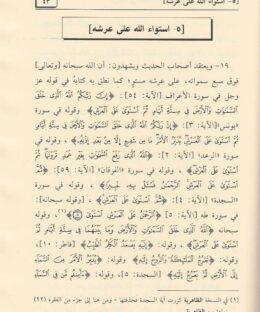 [٥- استواء الله على عرشه]
٤٣
[٥- استواء الله على عرشه]
١٩- ويعتقد أصحاب الحديث ويشهدون: أن الله سبحانه [وتعالى]
فوق سبع سمواته، على عرشه مستو؛ كما نطق به كتابه في قوله عز
وجل في سورة الأعراف [الآية: ٥٤]: ﴿إِنَّ رَبَّكُمُ اللَّهُ الَّذِي خَلَقَ
السَّمَوَاتِ وَالْأَرْضَ فِي سِتَّةِ أَيَّامٍ ثُمَّ اسْتَوَى عَلَى الْعَرْشِ﴾ وقوله في سورة
«يونس» [الآية: ٣]: ﴿إِنَّ رَبَّكُمُ اللَّهُ الَّذِي خَلَقَ السَّمَوَاتِ وَالْأَرْضَ فِي سِتَّةِ أَيَّامٍ ثُمَّ
اسْتَوَى عَلَى الْعَرْشِ يُدَبِّرُ الْأَمْرَ مَا مِن شَفِيعٍ إِلَّا مِن بَعْدِ إِذْنِهِ﴾، وقوله في
سورة «الرعد» [الآية: ٢]: ﴿اللَّهُ الَّذِي رَفَعَ السَّمَوَاتِ بِغَيْرِ عَمَدٍ تَرَوْنَهَا ثُمَّ
اسْتَوَى عَلَى الْعَرْشِ﴾، وقوله في سورة «الفرقان» [الآية: ٥٩]: ﴿ثُمَّ
اسْتَوَى عَلَى الْعَرْشِ الرَّحْمَنُ فَسْئَلْ بِهِ خَبِيرًا﴾، وقوله في سورة
«السجدة» [الآية: ٤]: ﴿ثُمَّ اسْتَوَى عَلَى الْعَرْشِ﴾، [وقوله سبحانه]:
في سورة طه [الآية: ٥]: ﴿الرَّحْمَنُ عَلَى الْعَرْشِ اسْتَوَى﴾(١)،
﴿إِلَيْهِ يَصْعَدُ الْكَلِمُ الطَّيِّبُ﴾ [فاطر: ١٠]،
وقوله: ﴿يُدَبِّرُ الْأَمْرَ مِنَ السَّمَاءِ
إِلَى الْأَرْضِ ثُمَّ يَعْرُجُ إِلَيْهِ﴾ [السجدة: ٥]، وقوله: ﴿ءَأَمِنتُم مَّن فِي السَّمَاءِ
(١) في النسخة الظاهرية كررت آية السجدة فحذفتها - ومن هنا إلى جزء من الفقرة (٢٢)